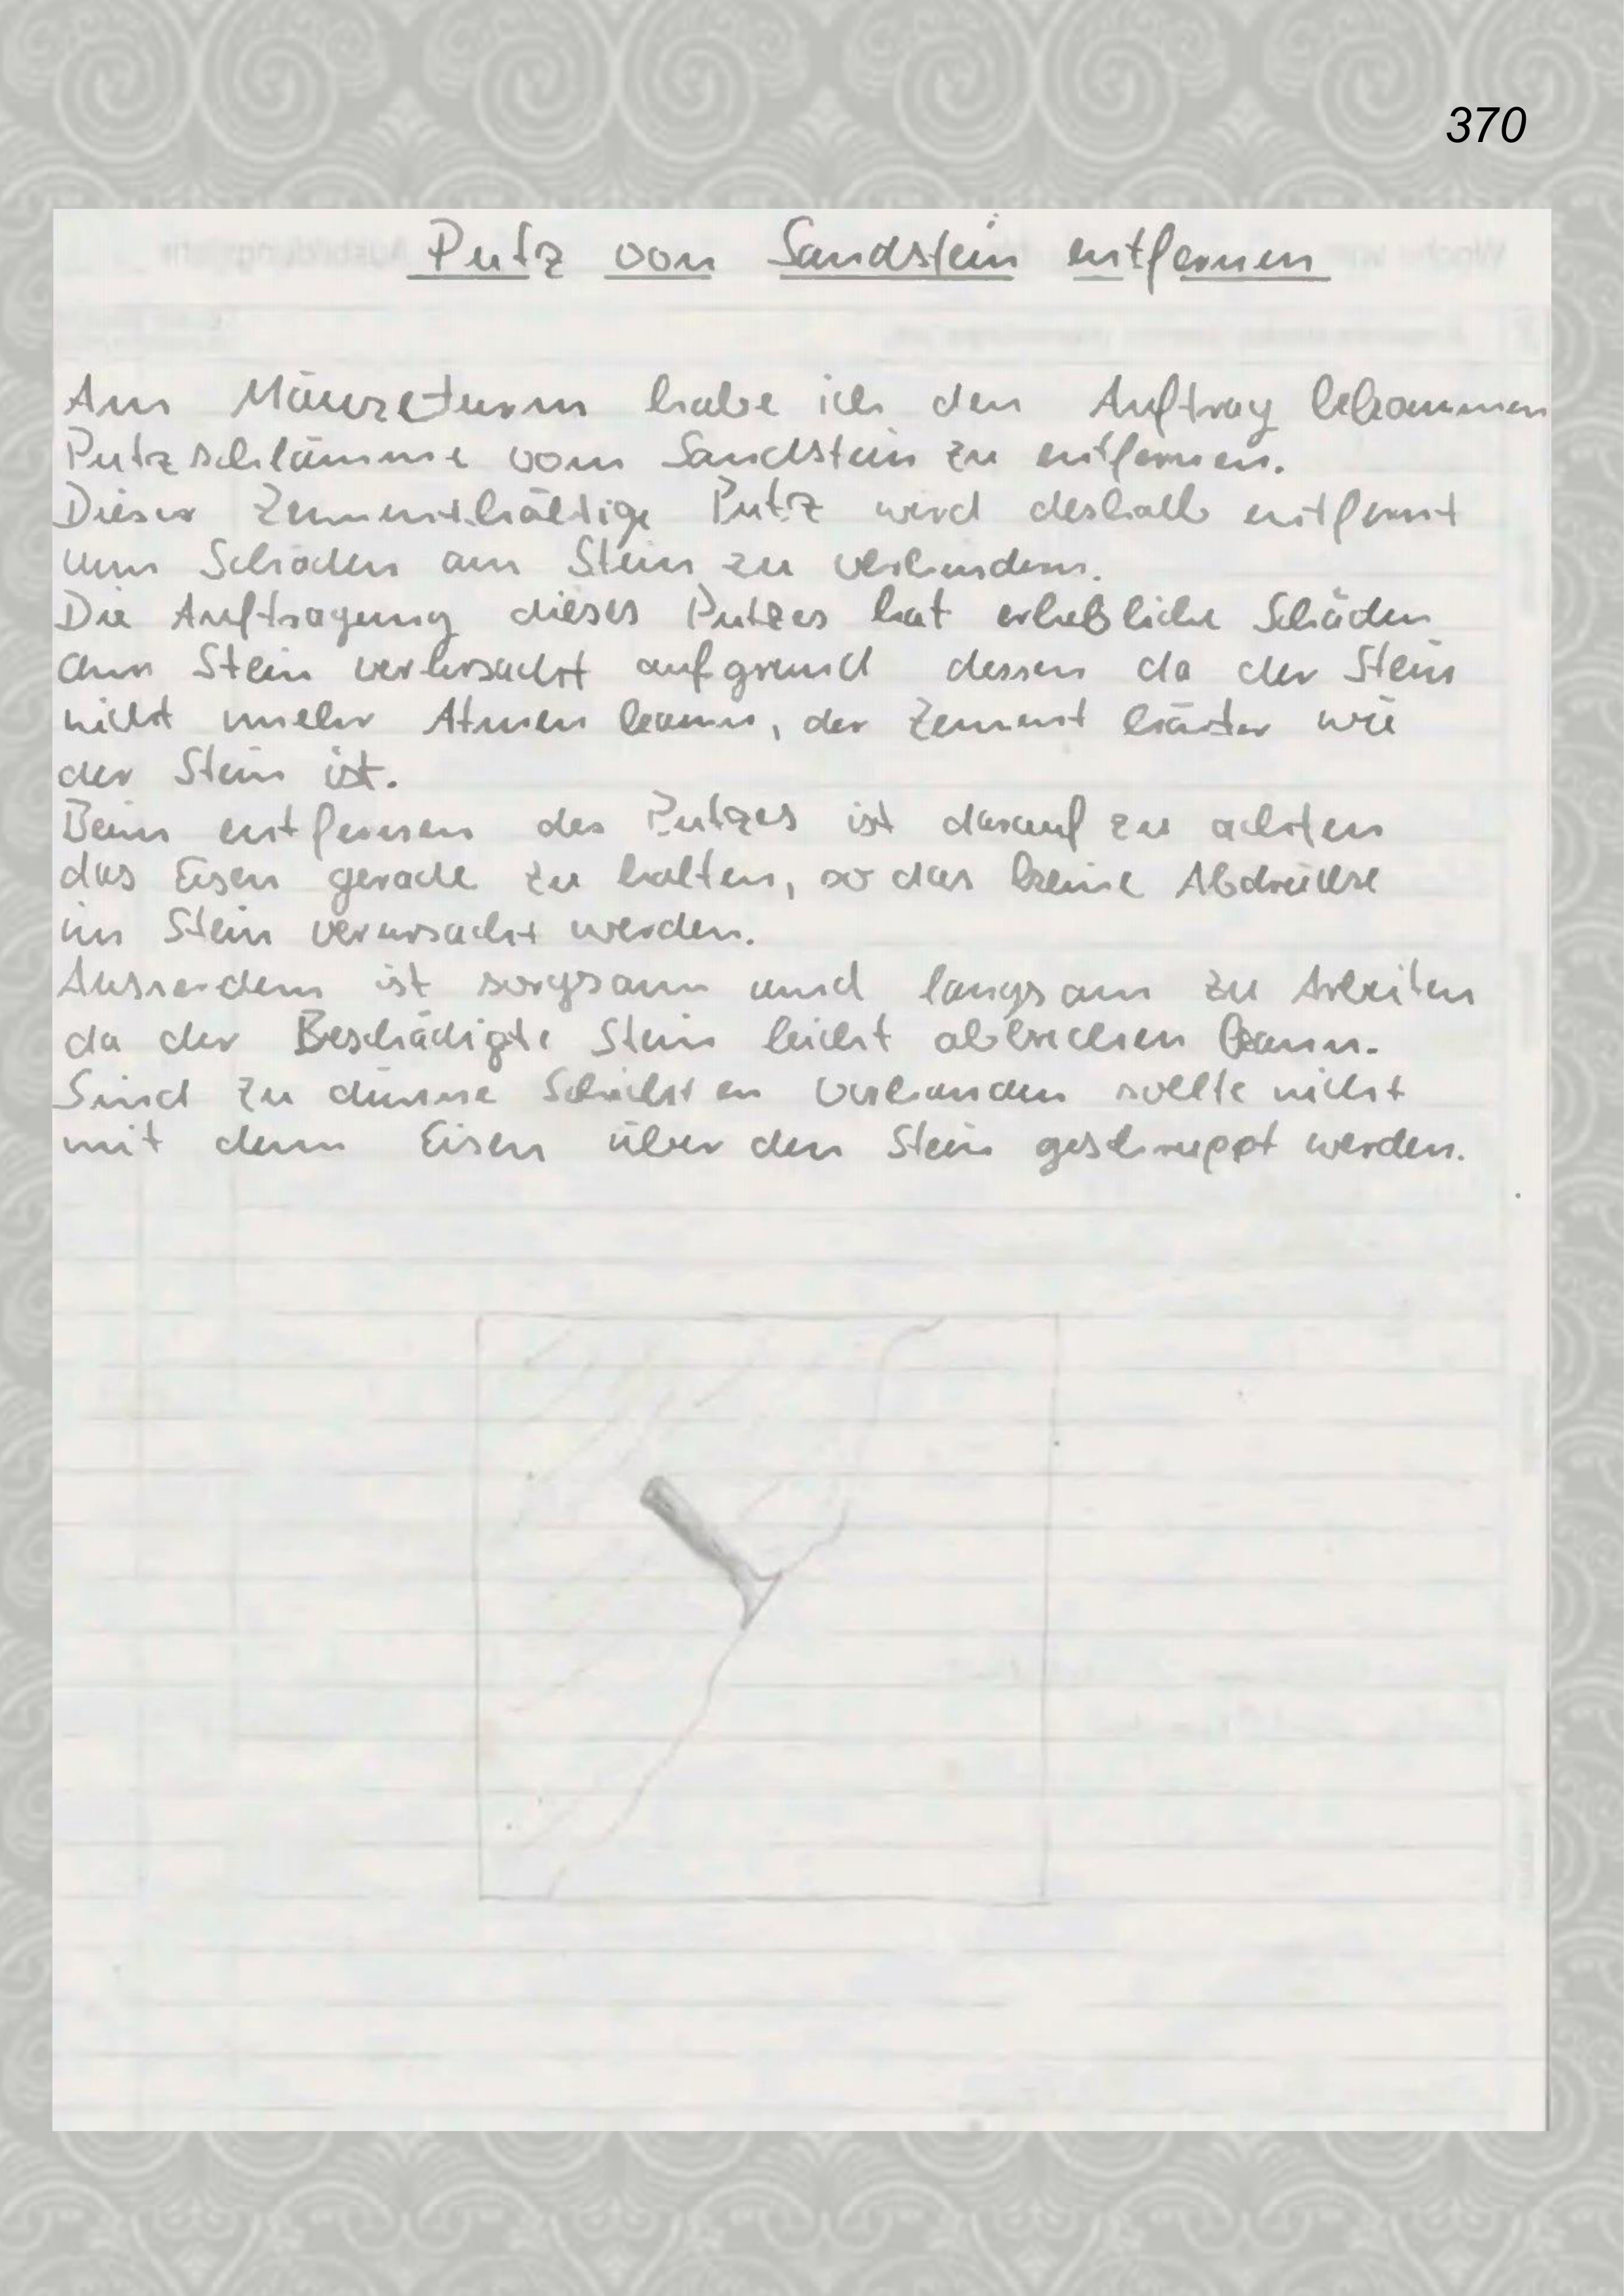 370
Putz von Sandstein entfernen
Am Mäuseturm habe ich den Auftrag bekommen
Putzschlämme vom Sandstein zu entfernen.
Dieser Zementhältige Putz wird deshalb entfernt
um Schäden am Stein zu verhindern.
Die Auftragung dieses Putzes hat erhebliche Schäden
am Stein verursacht aufgrund dessen da der Stein
nicht mehr Atmen kann, der Zement härter wie
der Stein ist.
Beim entfernen des Putzes ist darauf zu achten
das Eisen gerade zu halten, so das keine Abdrücke
im Stein verursacht werden.
Ausserdem ist sorgsam und langsam zu Arbeiten
da der Beschädigte Stein leicht abbrechen kann.
Sind zu dünne Schichten vorhanden sollte nicht
mit dem Eisen über den Stein geschruppt werden.